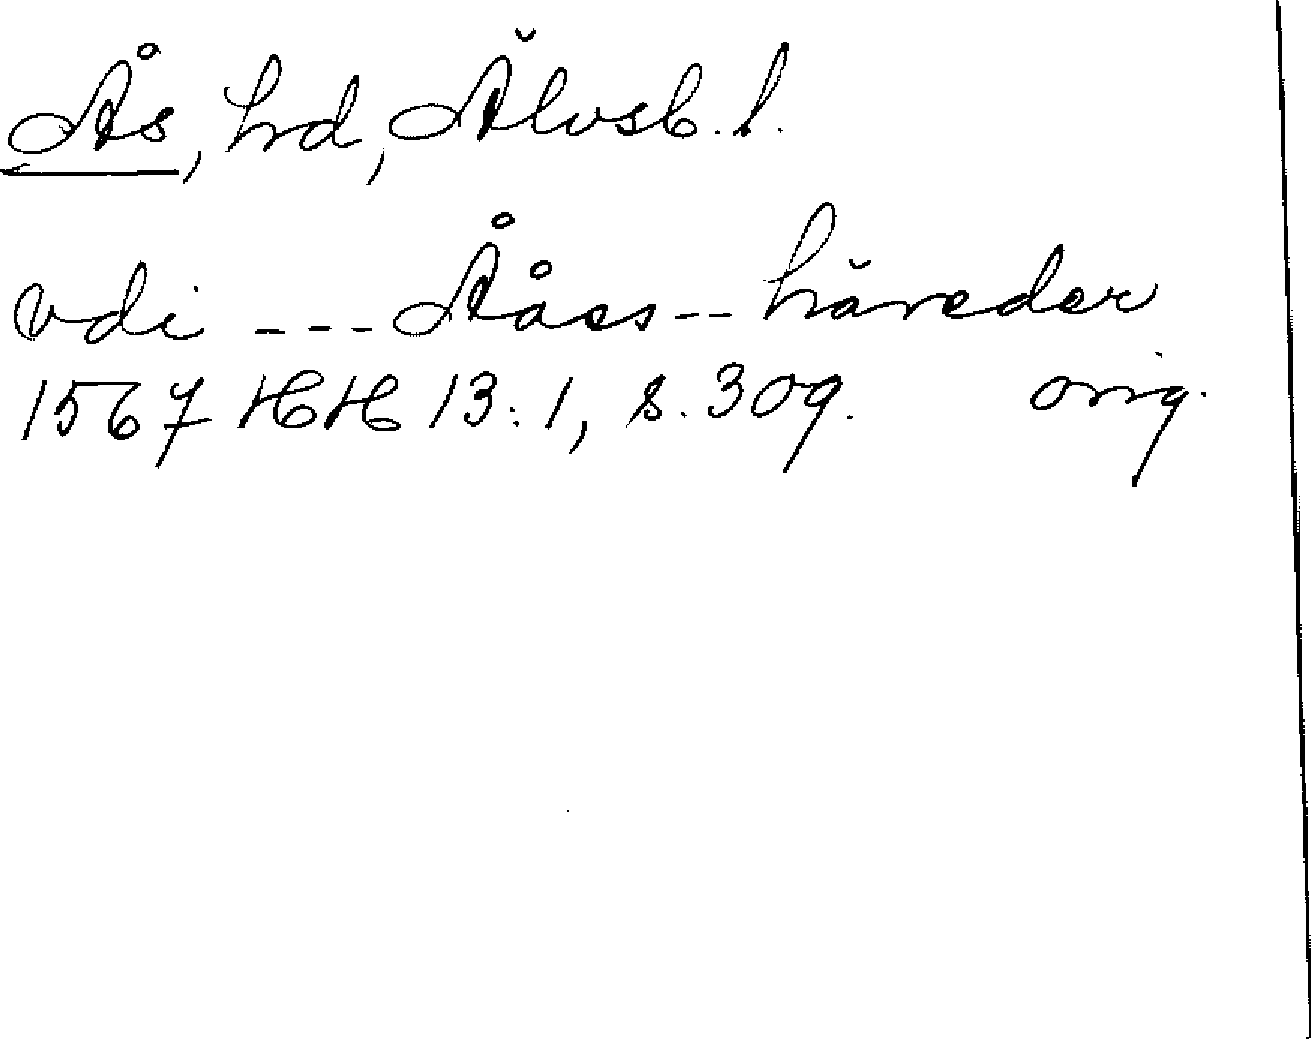 Ås, hd, Älvsb. l.
vdi --- Åås -- häreder
1567 HH 13:1, s. 309. orig.